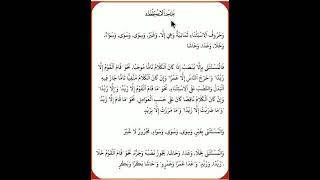 بَابُ الِاسْتِثْنَاءِ
وَحُرُوفُ الِاسْتِثْنَاءِ ثَمَانِيَةٌ وَهِيَ إِلَّا، وَغَيْرُ، وَسِوَى، وَسُوَى، وَسَوَاءٌ،
وَخَلَا، وَعَدَا، وَحَاشَا.
فَالْمُسْتَثْنَى بِإِلَّا يُنْصَبُ إِذَا كَانَ الْكَلَامُ تَامًّا مُوجَبًا، نَحْوُ قَامَ الْقَوْمُ إِلَّا
زَيْدًا وَخَرَجَ النَّاسُ إِلَّا عَمْرًا وَإِنْ كَانَ الْكَلَامُ مَنْفِيًّا تَامًّا جَازَ فِيهِ
الْبَدَلُ وَالنَّصْبُ عَلَى الِاسْتِثْنَاءِ، نَحْوُ مَا قَامَ الْقَوْمُ إِلَّا زَيْدٌ وَإِلَّا زَيْدًا
وَإِنْ كَانَ الْكَلَامُ نَاقِصًا كَانَ عَلَى حَسَبِ الْعَوَامِلِ، نَحْوُ مَا قَامَ إِلَّا زَيْدٌ
وَمَا ضَرَبْتُ إِلَّا زَيْدًا وَمَا مَرَرْتُ إِلَّا بِزَيْدٍ
وَالْمُسْتَثْنَى بِغَيْرٍ، وَسِوَى، وَسُوَى، وَسَوَاءٍ، مَجْرُورٌ لَا غَيْرُ
وَالْمُسْتَثْنَى بِخَلَا، وَعَدَا، وَحَاشَا، يَجُوزُ نَصْبُهُ وَجَرُّهُ، نَحْوُ قَامَ الْقَوْمُ خَلَا
زَيْدًا، وَزَيْدٍ وَعَدَا عَمْرًا وَعَمْرٍو وَحَاشَا بَكْرًا وَبَكْرٍ